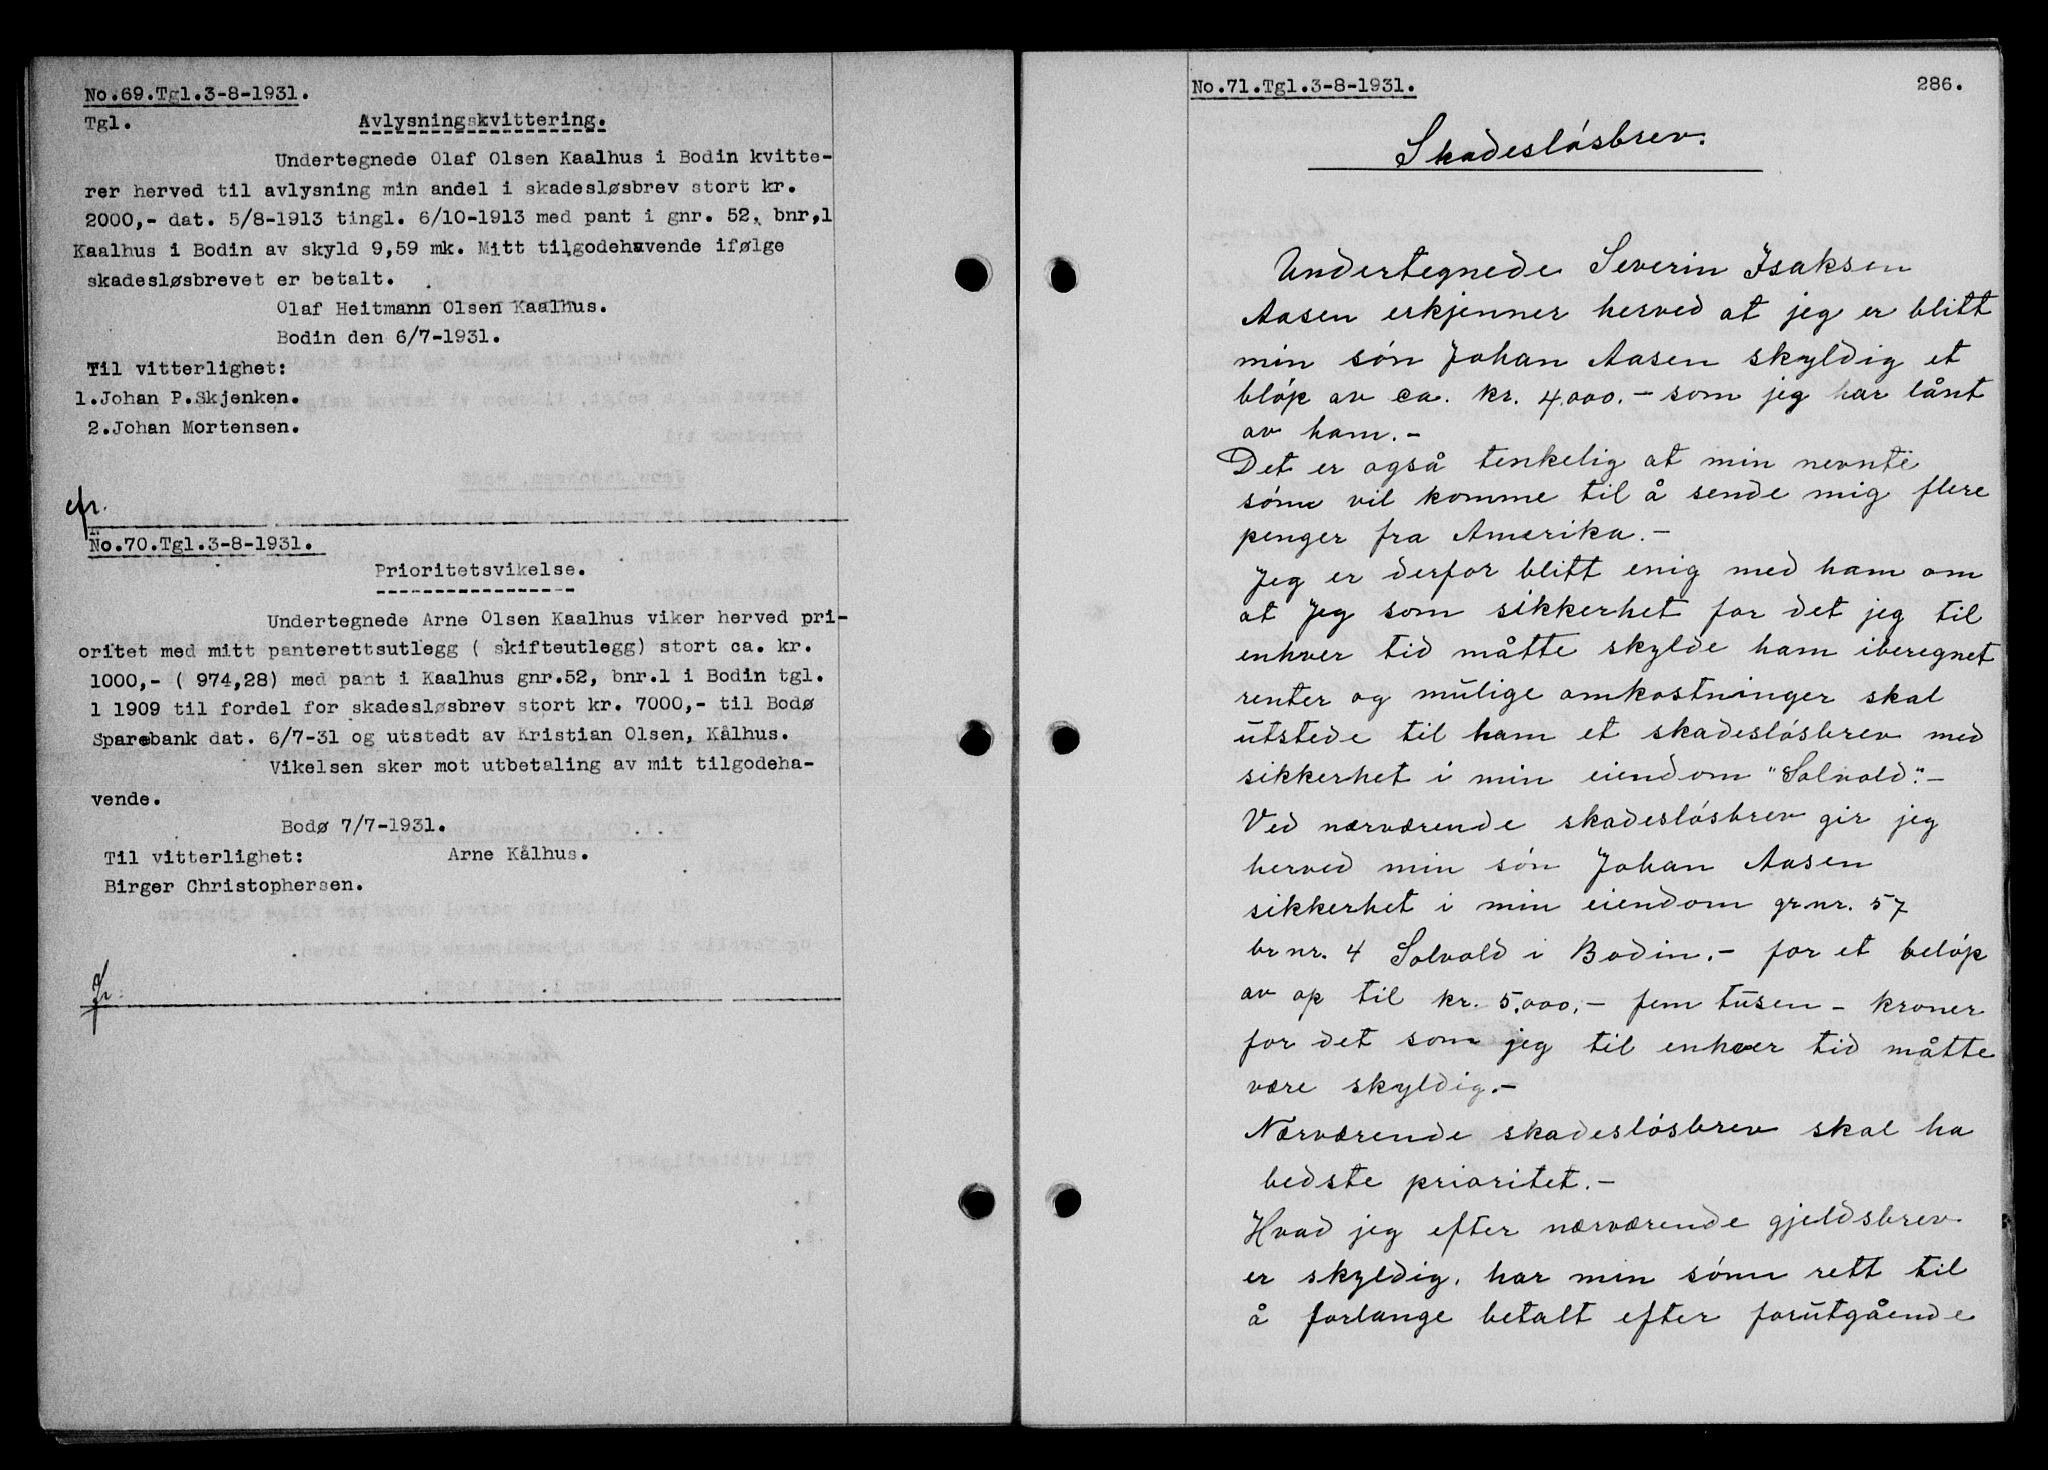 No.69.Tgl.3-8-1931.
Tgl.
Avlysningskvittering.
Undertegnede Olaf Olsen Kaalhus i Bodin kvitte-
rer herved til avlysning min andel i skadesløsbrev stort kr.
2000,- dat. 5/8-1913 tingl. 6/10-1913 med pant i gnr. 52, bnr,1
Kaalhus i Bodin av skyld 9,59 mk. Mitt tilgodehavende ifølge
skadesløsbrevet er betalt.
Olaf Heitmann Olsen Kaalhus.
Bodin den 6/7-1931.
Til vitterlighet:
1.Johan P.Skjenken.
2.Johan Mortensen.
No.70.Tgl.3-8-1931.
Prioritetsvikelse.
Undertegnede Arne Olsen Kaalhus viker herved pri-
oritet med mitt panterettsutlegg ( skifteutlegg) stort ca. kr.
1000,- ( 974,28) med pant i Kaalhus gnr.52, bnr.1 i Bodin tgl.
1 1909 til fordel for skadesløsbrev stort kr. 7000,- til Bodø
Sparebank dat. 6/7-31 og utstedt av Kristian Olsen, Kålhus.
Vikelsen sker mot utbetaling av mit tilgodeha-
vende.
Bodø 7/7-1931.
Til vitterlighet: Arne Kålhus.
Birger Christophersen.
No.71.Tgl.3-8-1931.
286.
Skadesløsbrev.
Undertegnede Severin Isaksen
Aasen erkjenner herved at jeg er blitt
min søn Johan Aasen skyldig et
bløp av ca. kr. 4.000.- som jeg har lånt
av ham.-
Det er også tenkelig at min nevnte
sønn vil komme til å sende mig flere
penger fra Amerika.-
Jeg er derfor blitt enig med ham om
at jeg som sikkerhet for det jeg til
enhver tid måtte skylde ham iberegnet
renter og mulige omkostninger skal
utstede til ham et skadesløsbrev med
sikkerhet i min eiendom "Solvold".-
Ved nærværende skadesløsbrev gir jeg
herved min søn Johan Aasen
sikkerhet i min eiendom gr.nr. 57
br nr. 4 Solvold i Bodin.- for et beløp
av op til kr. 5.000.- fem tusen - kroner
for det som jeg til enhver tid måtte
være skyldig.-
Nærværende skadesløsbrev skal ha
bedste prioritet.-
Hvad jeg efter nærværende gjeldsbrev
er skyldig, har min sønn rett til
å forlange betalt efter forutgående